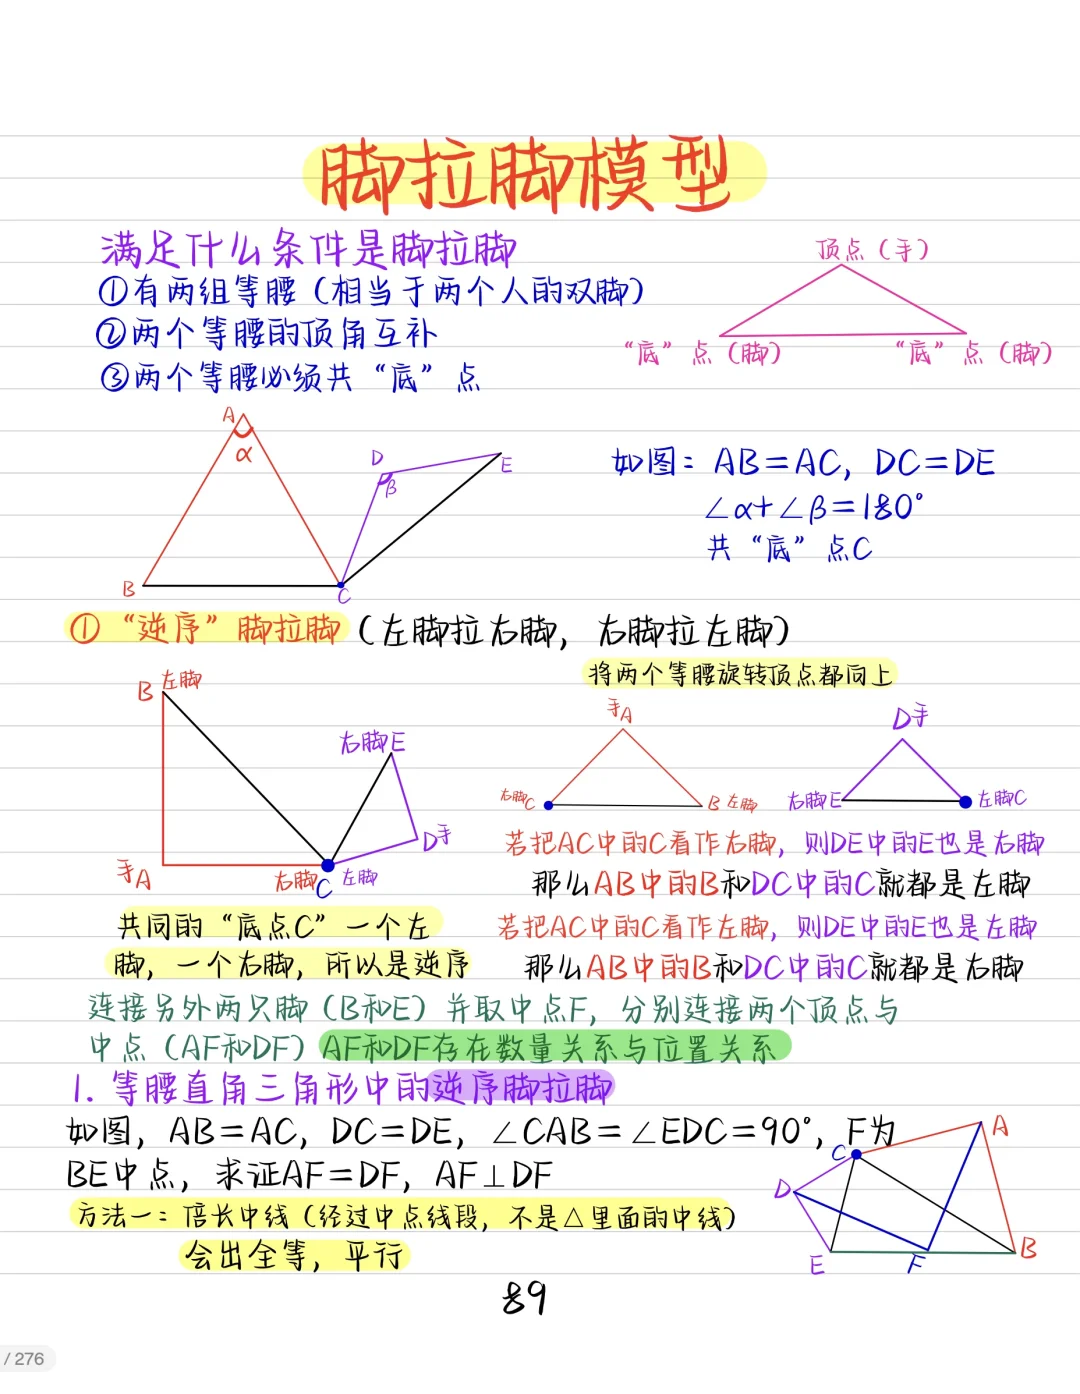 脚拉脚模型
满足什么条件是脚拉脚
①有两组等腰（相当于两个人的双脚）
②两个等腰的顶角互补
③两个等腰必须共“底”点
顶点（手）
“底”点（脚）
“底”点（脚）
A
α
B
C
D
β
E
如图：AB=AC，DC=DE
∠α+∠β=180°
共“底”点C
①“逆序”脚拉脚（左脚拉右脚，右脚拉左脚）
将两个等腰旋转顶点都向上
B左脚
右脚E
D手
手A
右脚C左脚
手A
右脚C
B左脚
D手
右脚E
左脚C
若把AC中的C看作右脚，则DE中的E也是右脚
那么AB中的B和DC中的C就都是左脚
共同的“底点C”一个左
脚，一个右脚，所以是逆序
若把AC中的C看作左脚，则DE中的E也是左脚
那么AB中的B和DC中的C就都是右脚
连接另外两只脚（B和E）并取中点F，分别连接两个顶点与
中点（AF和DF）AF和DF存在数量关系与位置关系
1. 等腰直角三角形中的逆序脚拉脚
如图，AB=AC，DC=DE，∠CAB=∠EDC=90°，F为
BE中点，求证AF=DF，AF⊥DF
方法一：倍长中线（经过中点线段，不是△里面的中线）
会出全等，平行
A
C
D
E
F
B
89
/ 276